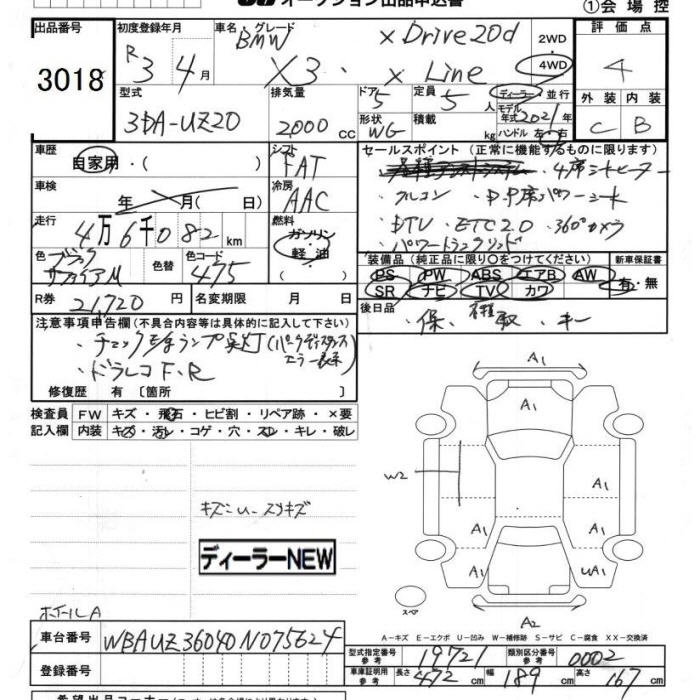 オークション出品申込書
①会場控
出品番号 3018
初度登録年月 R3 4月
車名・グレード BMW X3 xDrive20d x Line
2WD 4WD
評価点 4
外装 内装
C B
型式 3DA-UZ20
排気量 2000 cc
ドア 5 形状 WG
定員 5 人 積載 kg
ディーラー 並行
モデル年式 2021年
ハンドル 左・右
車歴 自家用・( )
シフト FAT
車検 年 月( 日)
冷房 AAC
走行 4万6千082 km
燃料 ガソリン・軽油 ( )
色 ブラックサファイアM 色替 色コード 475
R券 21720 円 名変期限 月 日
セールスポイント (正常に機能するものに限ります)
・4席シートヒーター
・クルコン ・D.P席パワーシート
・DTV ・ETC2.0 ・360°カメラ
・パワートランクリッド
装備品 (純正品に限り○をつけてください) 新車保証書
PS PW ABS エアB AW 有・無
SR ナビ TV カワ
後日品 ・保、取、キー
注意事項申告欄 (不具合内容等は具体的に記入して下さい)
・ドラレコ F.R
修復歴 有 〔箇所 〕
検査員記入欄 FW キズ・飛石・ヒビ割・リペア跡・×要
内装 キズ・汚レ・コゲ・穴・スレ・キレ・破レ
キズ
ディーラーNEW
ホイールA
A1
A1
W2
A1
A1
A1
A1
UA1
スペア
A2
A-キズ E-エクボ U-凹み W-補修跡 S-サビ C-腐食 XX-交換済
車台番号 WBAUZ36040N075624
登録番号
型式指定番号 参考 19721 類別区分番号 参考 0002
車庫証明用 参考 長さ 472 cm 幅 189 cm 高さ 167 cm
希望出品コーナー